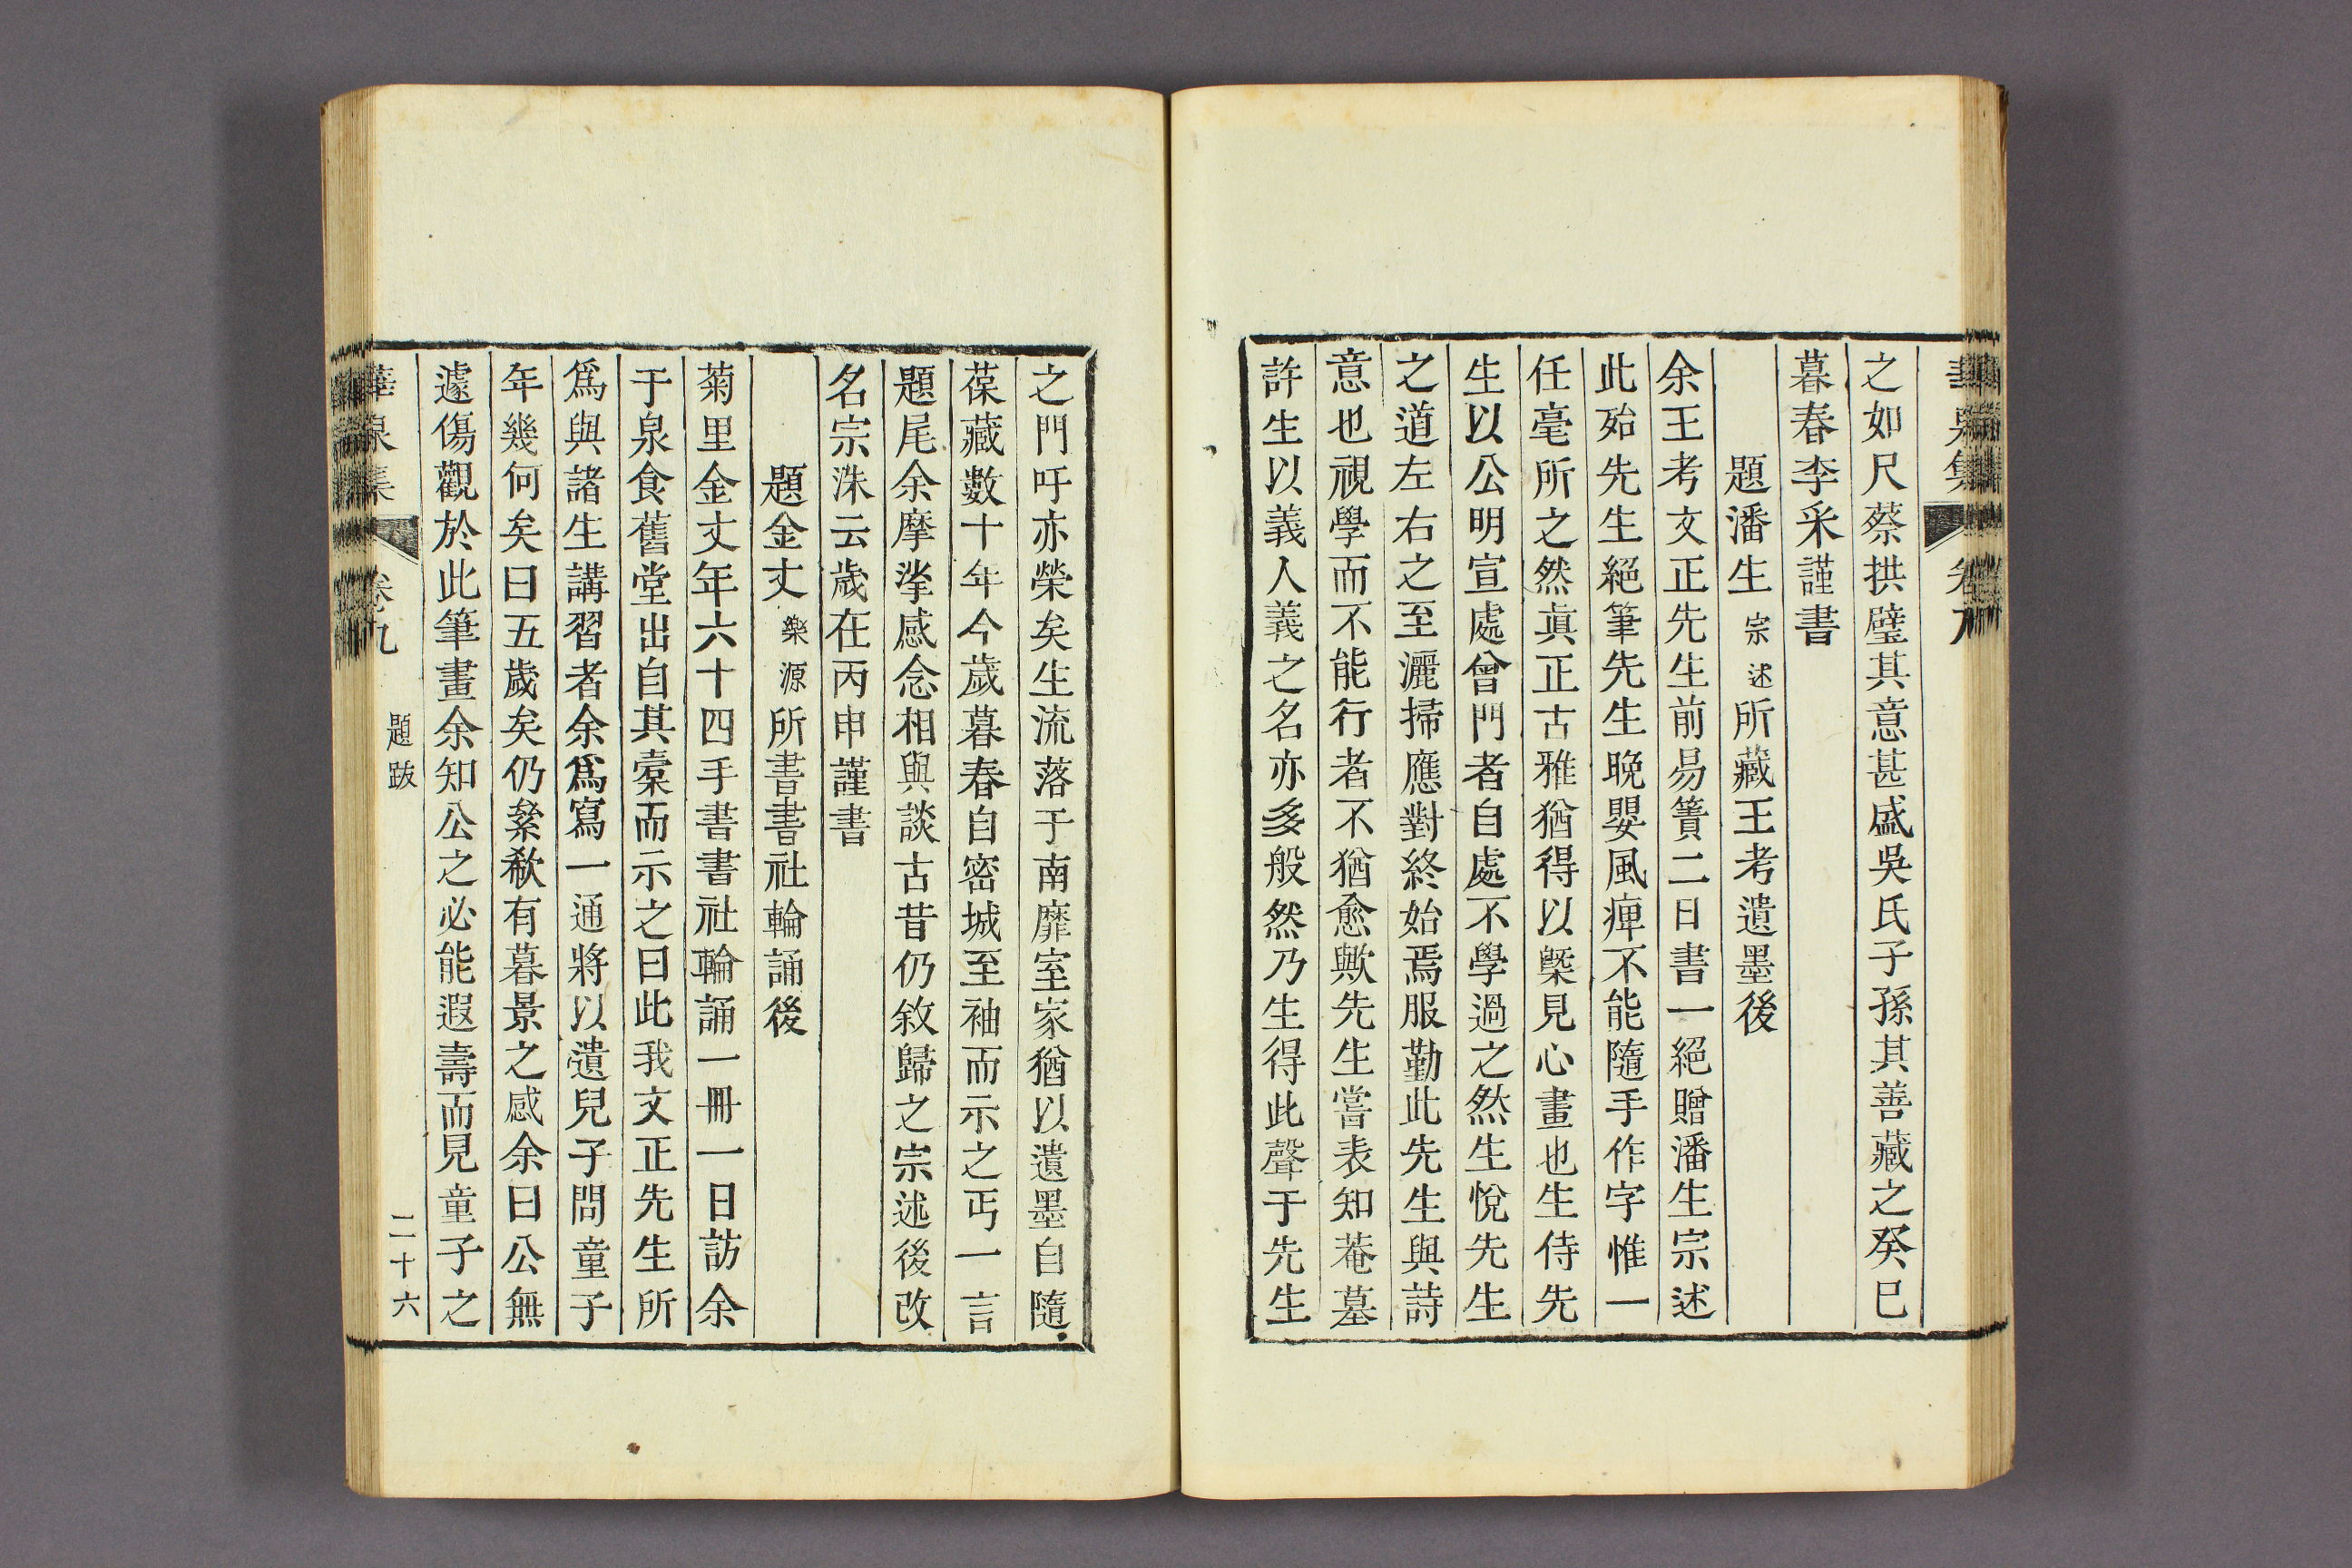 之如尺蔡拱璧其意甚盛吳氏子孫其善藏之癸巳
暮春李采謹書
題潘生宗述所藏王考遺墨後
余王考文正先生前易簀二日書一絕贈潘生宗述
此殆先生絕筆先生晚嬰風痺不能隨手作字惟一
任毫所之然眞正古雅猶得以槩見心畫也生侍先
生以公明宣處曾門者自處不學過之然生悅先生
之道左右之至灑掃應對終始焉服勤此先生與詩
意也視學而不能行者不猶愈歟先生嘗表知菴墓
許生以義人義之名亦多般然乃生得此聲于先生
之門吁亦榮矣生流落于南靡室家猶以遺墨自隨
葆藏數十年今歲暮春自密城至袖而示之丐一言
題尾余摩挲感念相與談古昔仍敘歸之宗述後改
名宗洙云歲在丙申謹書
題金丈樂源所書書社輪誦後
菊里金丈年六十四手書書社輪誦一冊一日訪余
于泉食舊堂出自其槖而示之曰此我文正先生所
爲與諸生講習者余爲寫一通將以遺兒子問童子
年幾何矣曰五歲矣仍欷有暮景之感余曰公無
遽傷觀於此筆畫余知公之必能遐壽而見童子之
華泉集 卷九 題跋 二十六